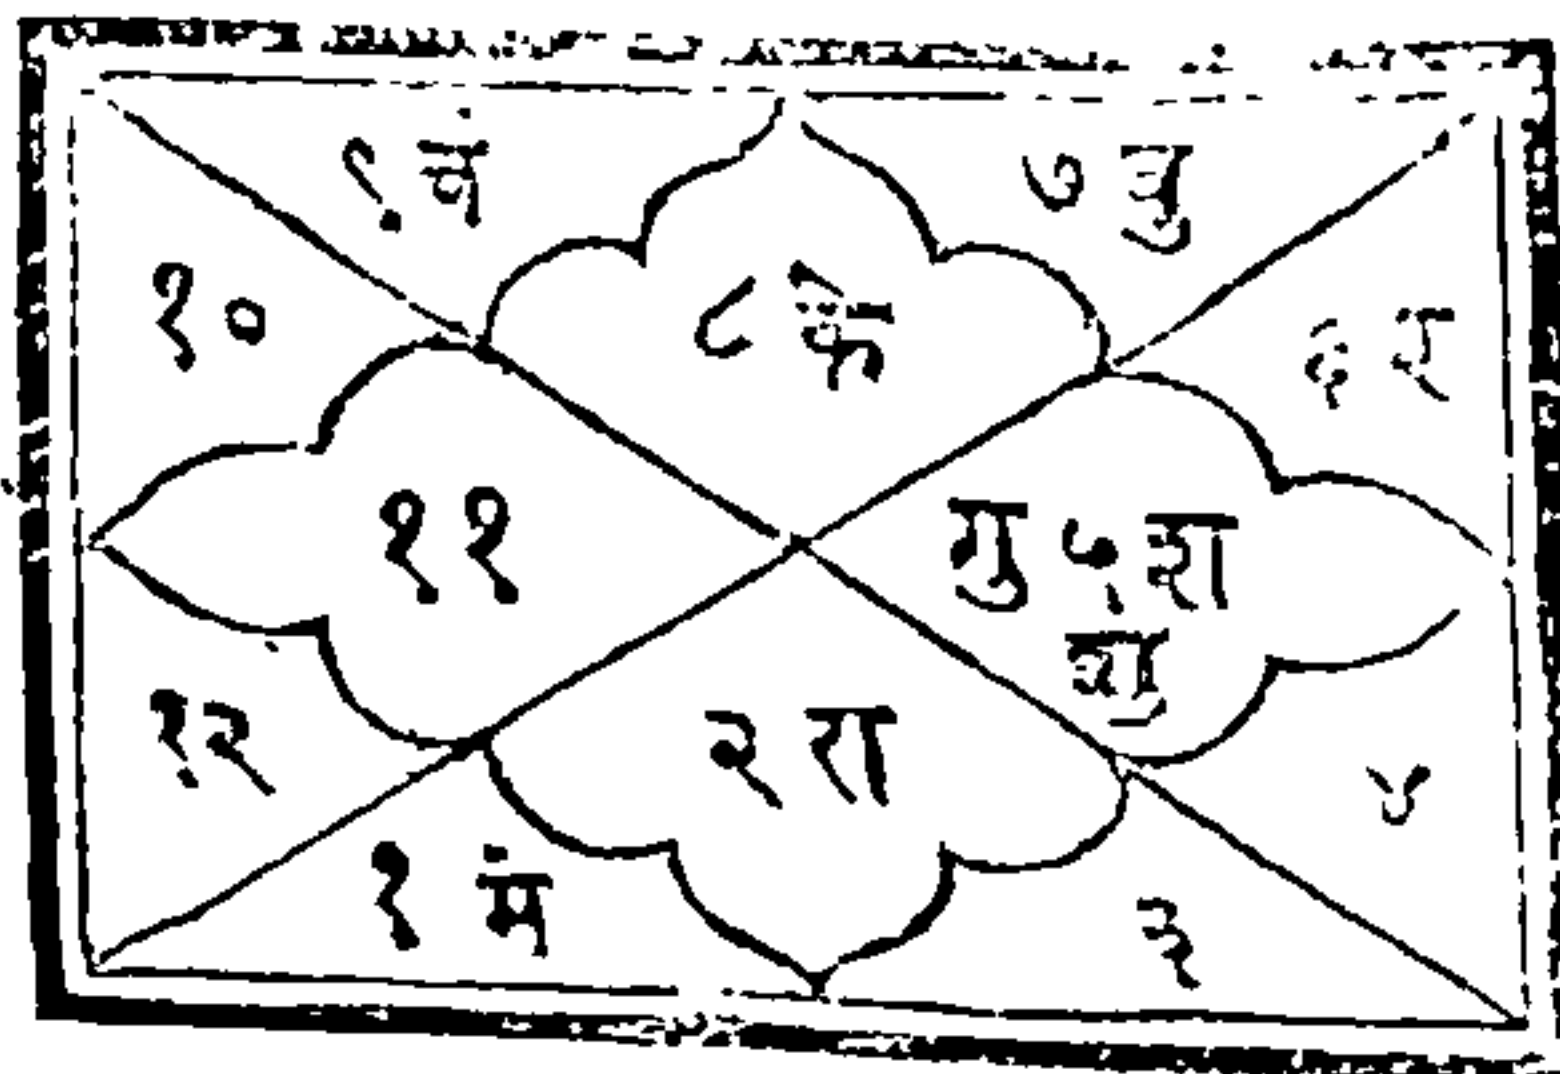 ९ चं
७ बु
१०
८ के
६ र
११
गु ५ श
शु
१२
२ रा
४
१ मं
३